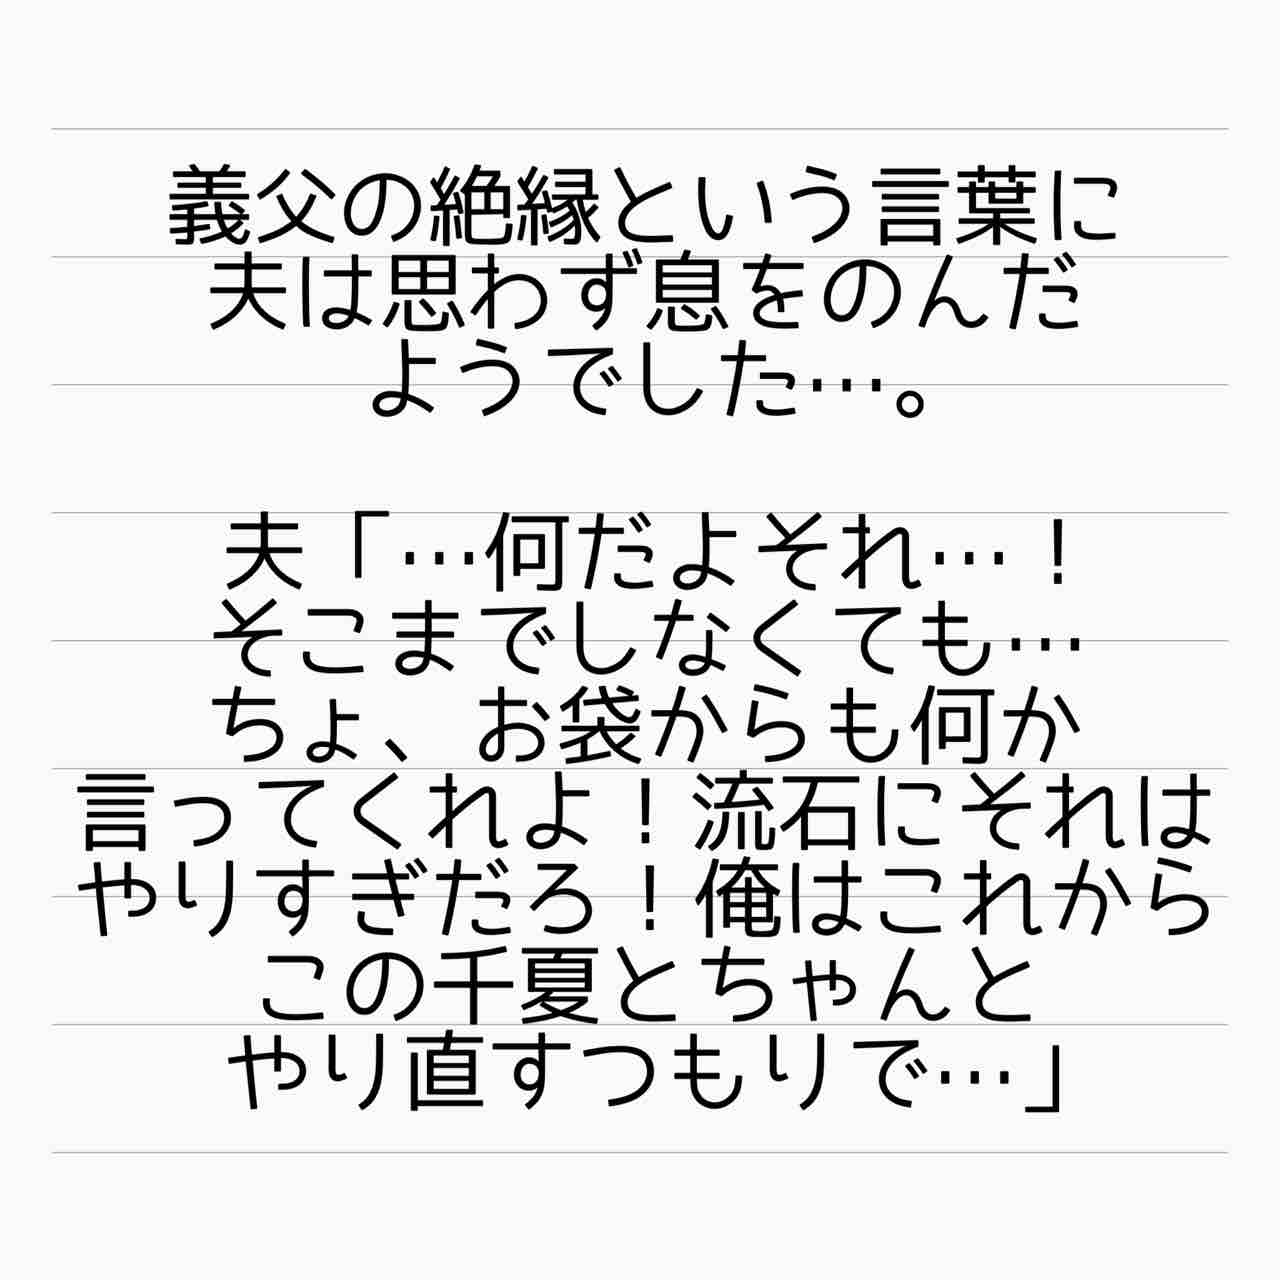 義父の絶縁という言葉に
夫は思わず息をのんだ
ようでした…。
夫「…何だよそれ…！
そこまでしなくても…
ちょ、お袋からも何か
言ってくれよ！流石にそれは
やりすぎだろ！俺はこれから
この千夏とちゃんと
やり直すつもりで…」